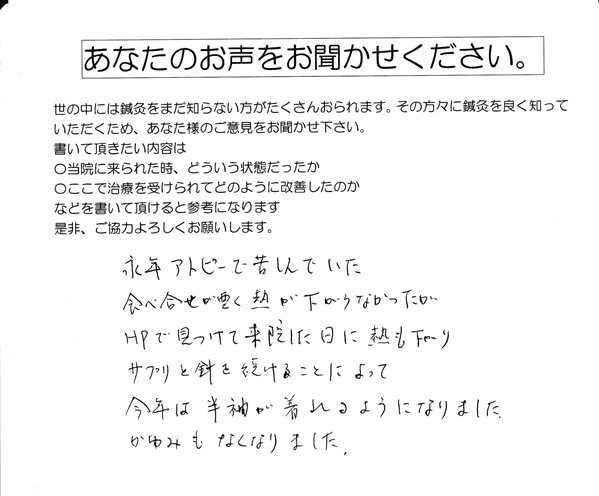 あなたのお声をお聞かせください。
世の中には鍼灸をまだ知らない方がたくさんおられます。その方々に鍼灸を良く知って
いただくため、あなた様のご意見をお聞かせ下さい。
書いて頂きたい内容は
〇当院に来られた時、どういう状態だったか
〇ここで治療を受けられてどのように改善したのか
などを書いて頂けると参考になります
是非、ご協力よろしくお願いします。
永年アトピーで苦しんでいた
食べ合せが悪く熱が下がらなかったが
HPで見つけて来院した日に熱も下がり
サプリと針を続けることによって
今年は半袖が着れるようになりました.
かゆみもなくなりました.